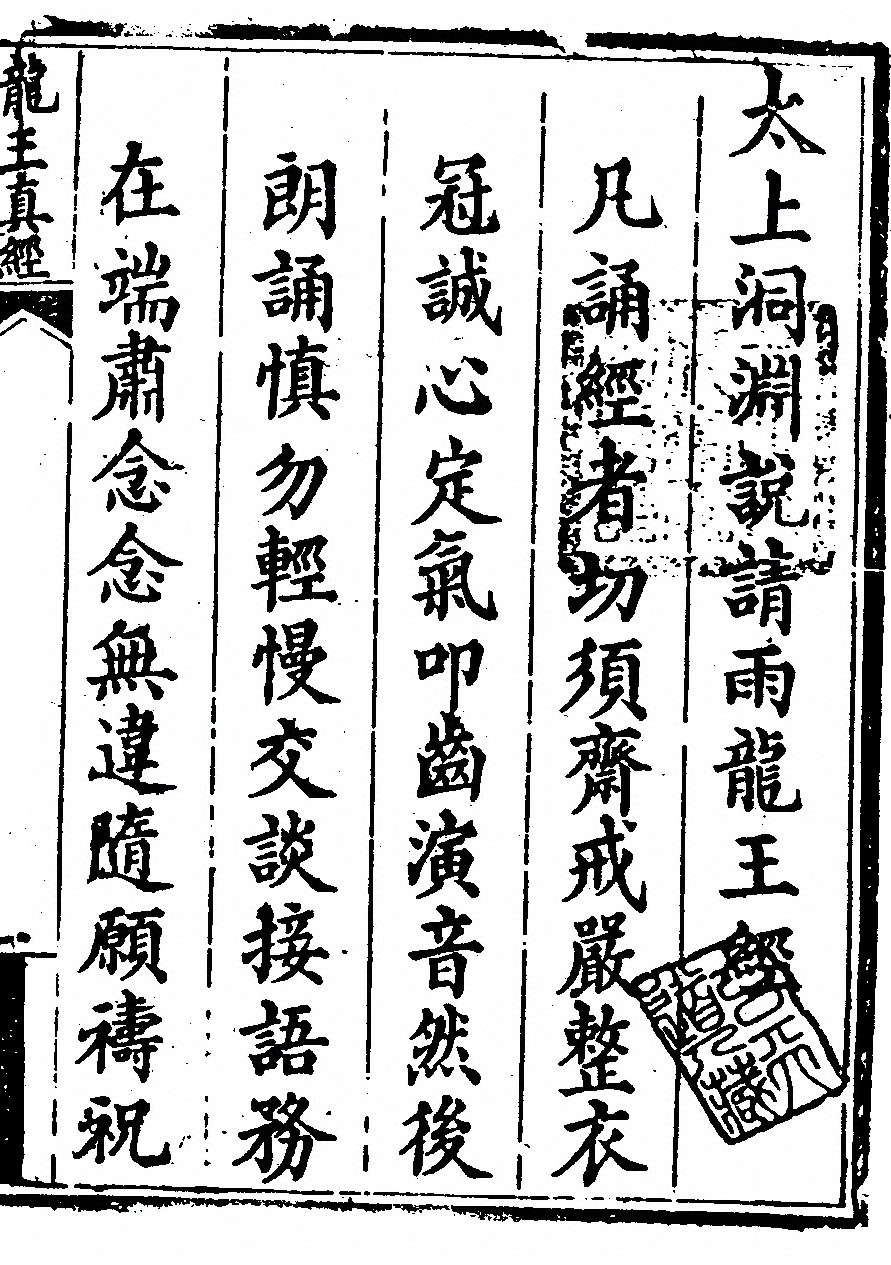 太上洞淵説請雨龍王經
凡誦經者切須齋戒嚴整衣
冠誠心定氣叩齒演音然後
朗誦慎勿輕慢交談接語務
在端肅念念無違隨願禱祝
龍王真經